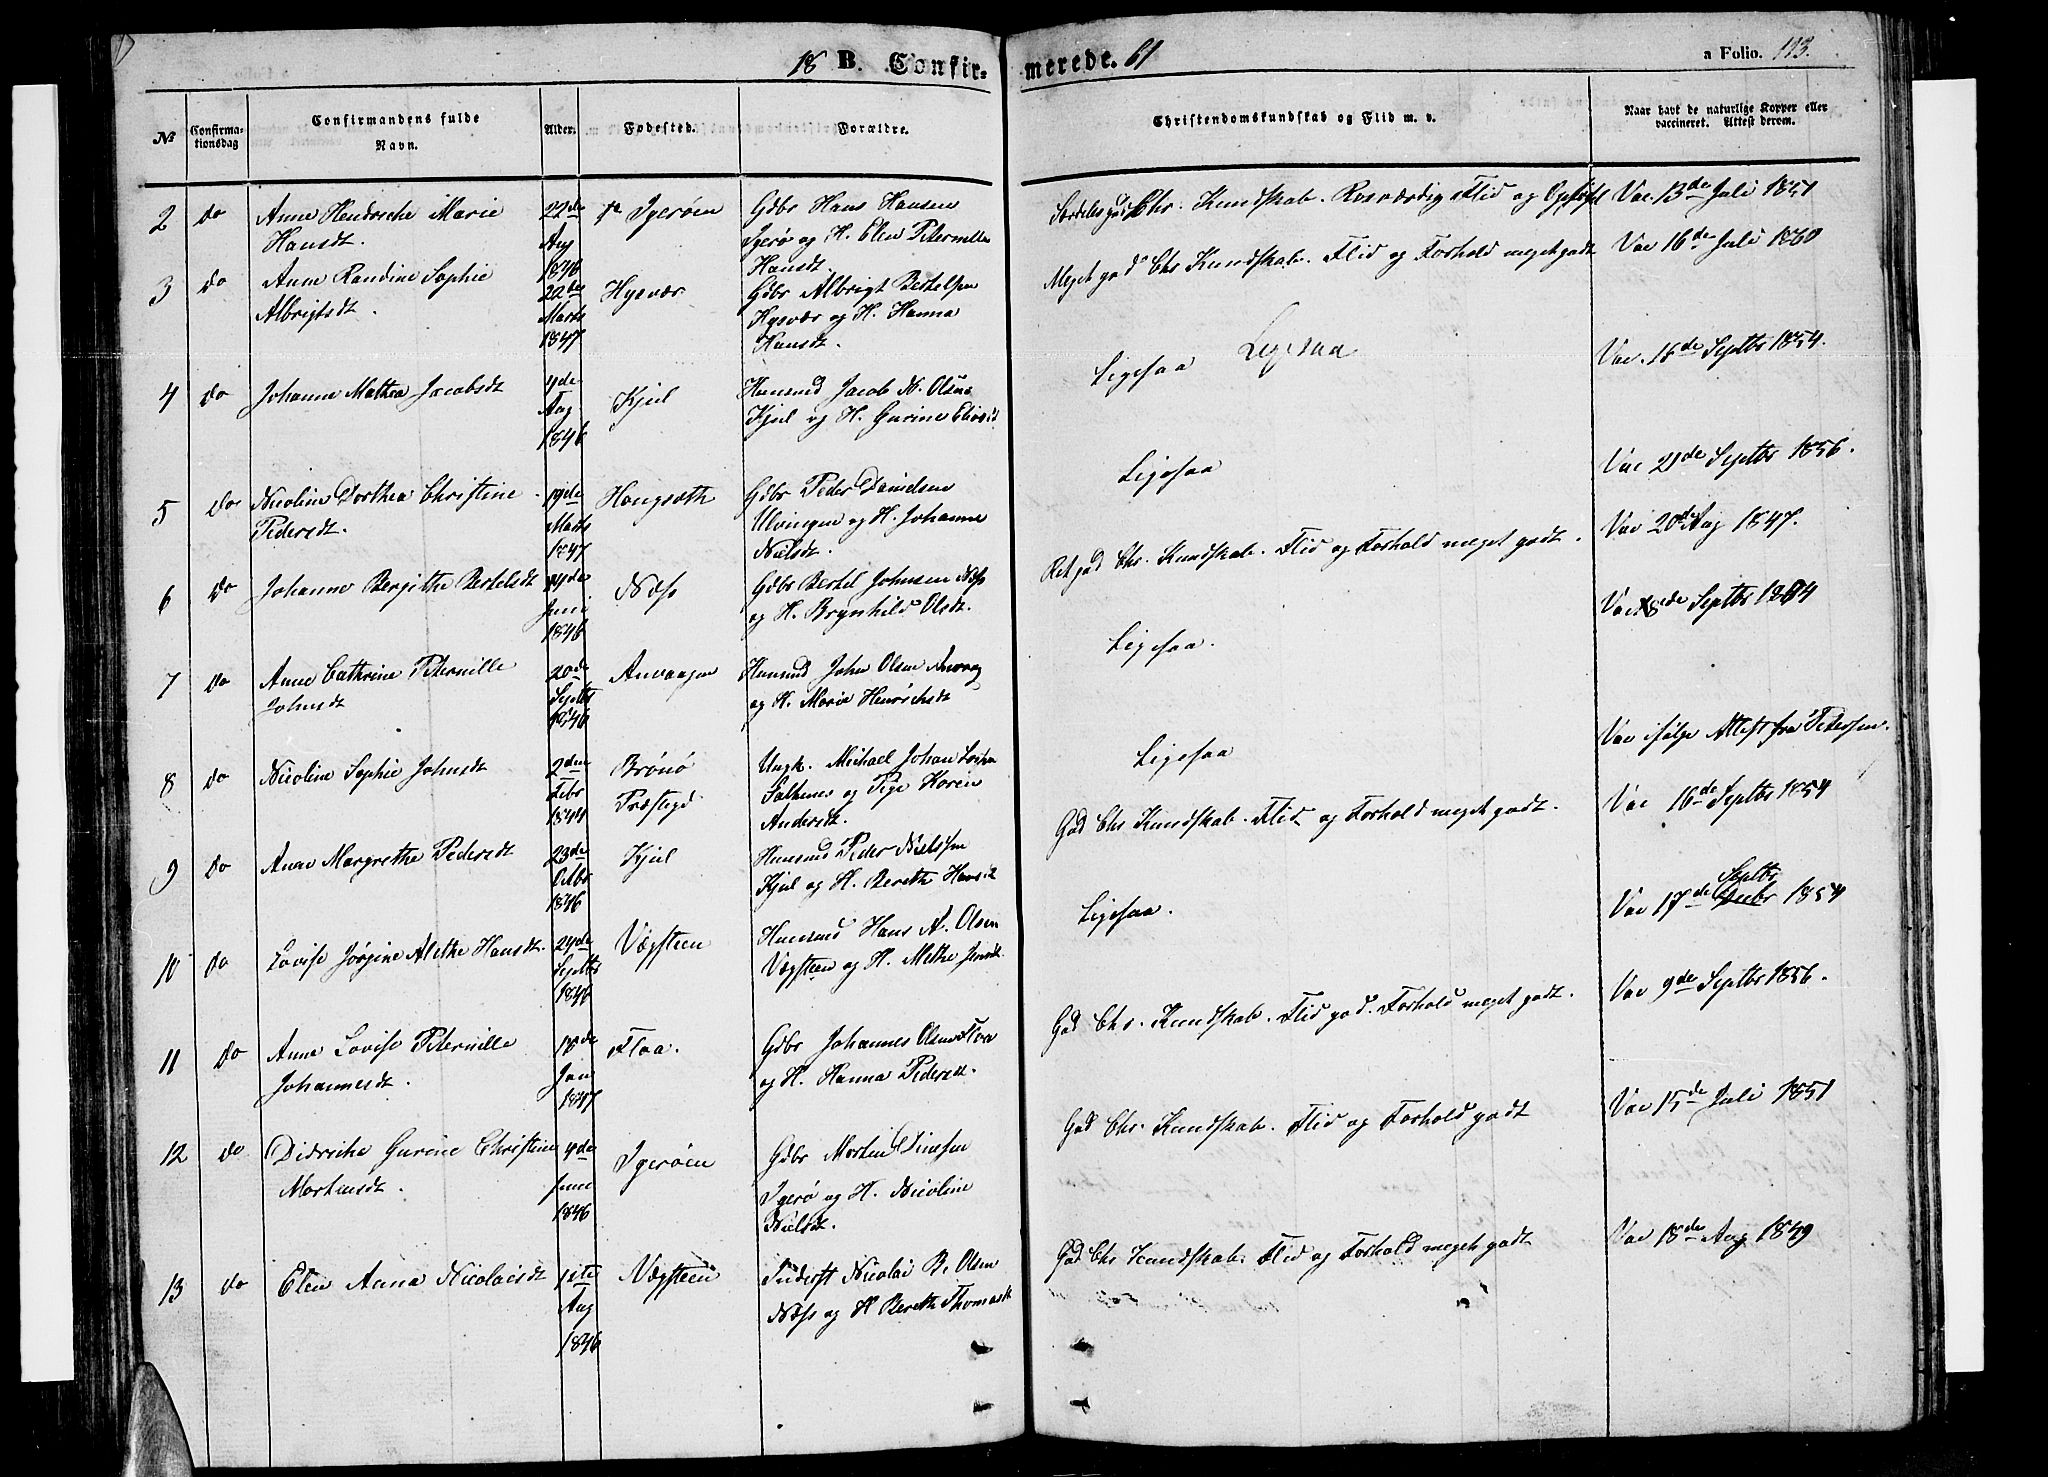 18 B. Confir-merede. 61
a Folio. 113.
№ Confirma-tionsdag Confirmandens fulde Navn. Alder. Fødested. Forældre. Christendomskundskab og Flid m. v. Naar havt de naturlige Kopper eller vaccineret. Attest derom.
2 do Anne Hendriche Marie
Hansdt.
22de Aug 1846
Igerøen
Gdbr Hans Hansen
Igerø og H. Elen Peternille
Hansdt.
Særdeles god Chr. Kundskab. Rosværdig Flid og Opførsel
Vac 13de Juli 1851
3 do Anne Randine Sophie
Albrigtsdt.
22de Marts 1847
Hysvær
Gdbr Albrigt Bertelsen
Hysvær og H. Hanna
Hansdt.
Meget god Chr Kundskab. Flid og Forhold meget godt
Vac 16de Juli 1860
Ligesaa
4 do Johanne Mathea Jacobsdt
4de Aug 1846
Kjul
Huusmd Jacob N. Olsen
Kjul og H. Gurine
Ligesaa
Vac. 16de Septbr 1854.
5 do Nicoline Dorthea Christine
Pedersdt.
19de Marts 1847
Hongsæth
Gdbr Peder Danielsen
Ulvingen og H. Johanne
Nielsdt.
Ligesaa
Vac 21de Septbr 1856.
6 do Johanne Bergithe Bertelsdt
Juni 1846
Næss
Gdbr Bertel Johnsen Næss
og H. Brynhild Olsdt.
Ret god Chr. Kundskab. Flid og Forhold meget godt.
Vac 20de Aug 1847.
7 do Anne Cathrine Peternille
Johnsdt
20de Septbr 1846
Anvaagen
Huusmd John Olsen
og H. Marie Henrichsdt
Ligesaa.
Vac Septbr
8 do Nicoline Sophie Johnsdt
2den Febr 1844
Brønø
Præstegd.
Ungk. Michael Johan
Salthnes og Pige Karen
Andersdt.
Ligesaa
Vac ifølge Attest fra Pedersen.
9 do Anne Margrethe Pedersdt
23de Octbr 1846
Kjul
Huusmd Peder Nielssen
Kjul og H. Berethe Hansdt
God Chr Kundskab. Flid og Forhold meget godt.
Vac 16de Septbr 1854
10 do Lovise Jørgine Alethe Hansdt.
24de Septbr 1846
Vægsteen
Huusmd Hans A. Olsen
Vægsteen og H. Methe
Ligesaa.
Vac 17de Septbr 1854
11 do Anne Lovise Peternille
Johannesdt.
18de Jan 1847
Floa.
Gdbr Johannes Olsen Floa
og H. Hanna Pedersdt.
God Chr. Kundskab. Flid god. Forhold meget godt.
Vac 9de Septbr 1856.
12 do Didricha Gurine Christine
Mortensdt.
4de Juni 1846
Igerøen
Gdbr Morten
Igerø og H. Nicoline
Nielsdt.
God Chr. Kundskab. Flid og Forhold godt
Vac 15de Juli 1851
13 do Elen Anna Nicolaisdt
1ste Aug 1846
Vægsteen
Inderst Nicolai B. Olsen
Næss og H Berethe Thomasdt
God Chr Kundskab. Flid og Forhold meget godt
Vac 18de Aug 1849